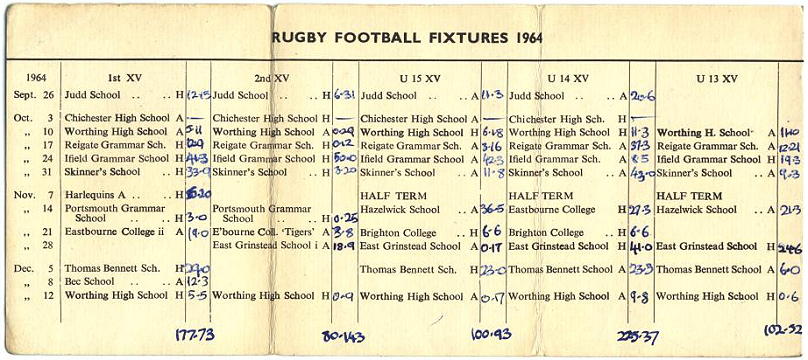 RUGBY FOOTBALL FIXTURES 1964
1964 1st XV 2nd XV U 15 XV U 14 XV U 13 XV
Sept. 26 Judd School .. .. H Judd School .. .. H 6-31 Judd School .. A 11.3 Judd School .. .. A
Oct. 3 Chichester High School A — Chichester High School H — Chichester High School A — Chichester High Sch. H —
„ 10 Worthing High School A 5-11 Worthing High School A Worthing High School H 6-18 Worthing High School H 11-3 Worthing H. School A
„ 17 Reigate Grammar Sch. H Reigate Grammar Sch. H 0-12 Reigate Grammar Sch. A 3-16 Reigate Grammar Sch. A 37-3 Reigate Grammar Sch. A 12-21
„ 24 Ifield Grammar School A Ifield Grammar School H 50-0 Ifield Grammar School A 42-3 Ifield Grammar School A 8-5 Ifield Grammar School H 19-3
„ 31 Skinner's School .. H 33-0 Skinner's School .. H 3-20 Skinner's School .. A 11-8 Skinner's School .. A 43-0 Skinner's School .. A 9-3
Nov. 7 Harlequins A .. .. H HALF TERM HALF TERM HALF TERM
„ 14 Portsmouth Grammar Portsmouth Grammar Hazelwick School .. A 36-5 Eastbourne College H 27-3 Hazelwick School .. A 21-3
School .. .. H 3-0 School .. .. H 0-25
„ 21 Eastbourne College ii A 19-0 E'bourne Coll. 'Tigers' A 3-8 Brighton College .. H 6-6 Brighton College .. H 6-6
„ 28 East Grinstead School i A 18-9 East Grinstead School A 0-17 East Grinstead School H 41-0 East Grinstead School H
Dec. 5 Thomas Bennett Sch. H 29-0 Thomas Bennett Sch. H 23-0 Thomas Bennett School A 23-3 Thomas Bennett School A 6-0
„ 8 Bec School .. .. A 12-3
„ 12 Worthing High School H 5-5 Worthing High School H 0-9 Worthing High School A 0-17 Worthing High School A 9-8 Worthing High School H 0-6
177-73 80-143 100-93 225-37 102-52